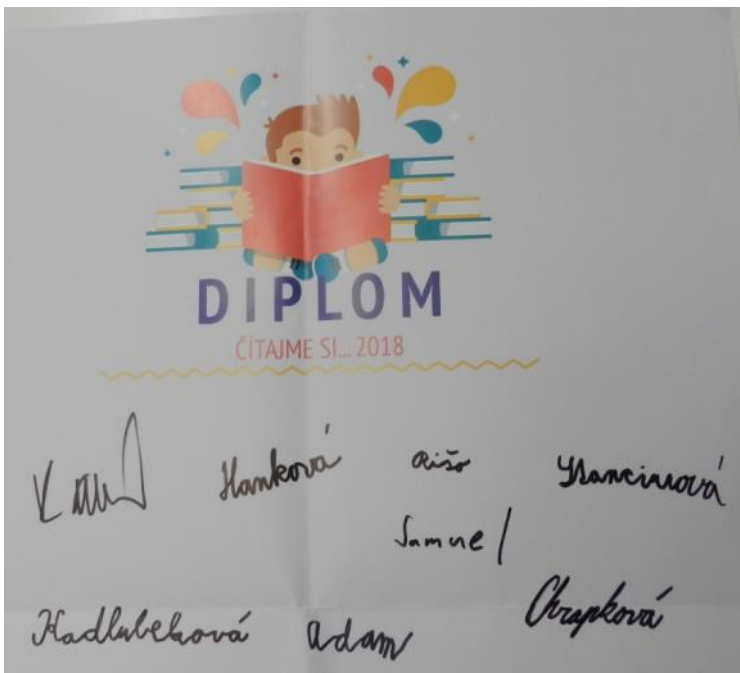 DIPLOM
ČÍTAJME SI... 2018
Hanková Rišo
Samuel
Kadlubeková adam Chrapková